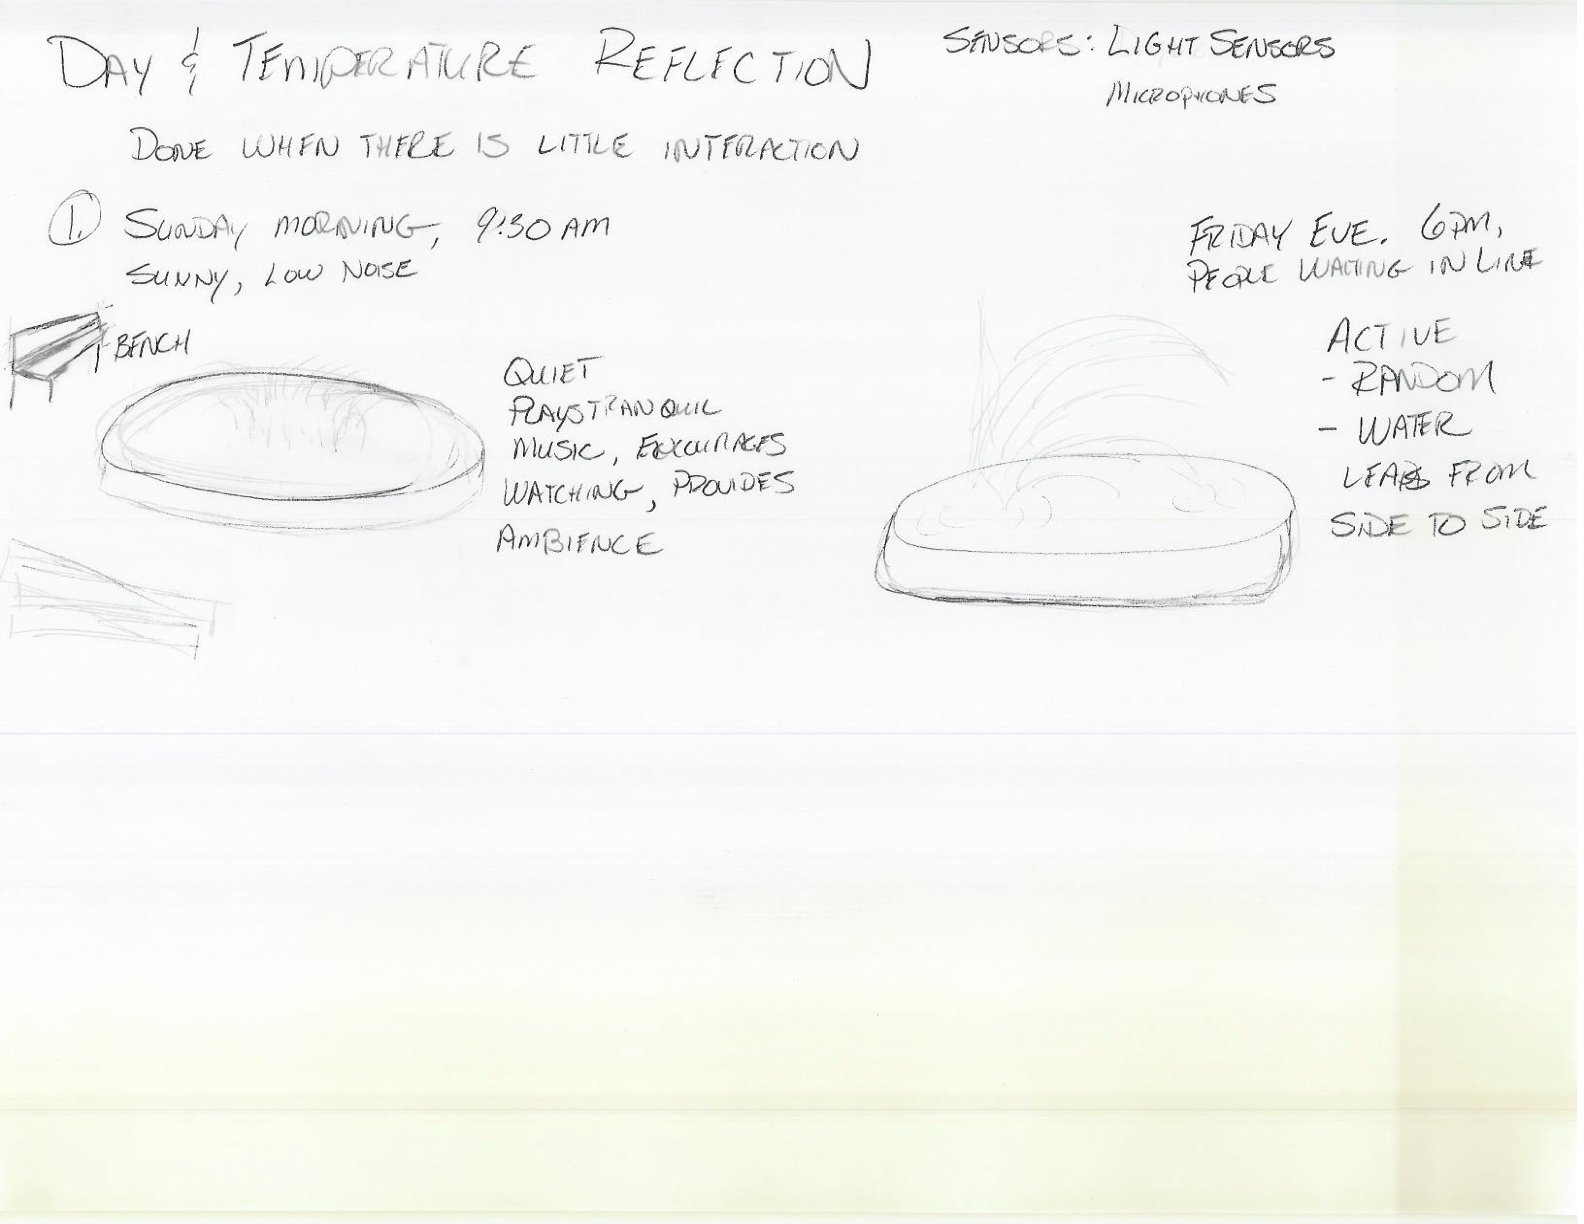 DAY & TEMPERATURE REFLECTION
SENSORS: LIGHT SENSORS
MICROPHONES
DONE WHEN THERE IS LITTLE INTERACTION
1. SUNDAY MORNING, 9:30 AM
SUNNY, LOW NOISE
BENCH
QUIET
PLAYS TRANQUIL
MUSIC, ENCOURAGES
WATCHING, PROVIDES
AMBIENCE
FRIDAY EVE. 6PM,
PEOPLE WAITING IN LINE
ACTIVE
- RANDOM
- WATER
LEAPS FROM
SIDE TO SIDE